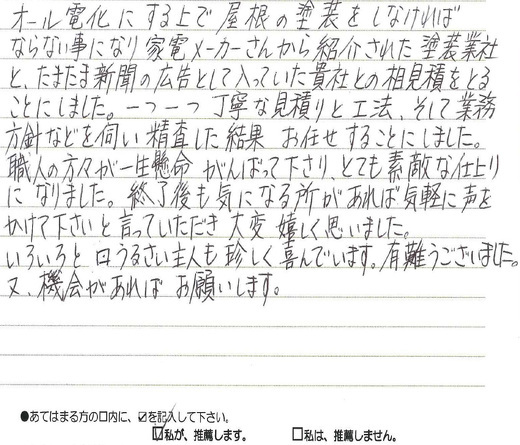 オール電化にする上で屋根の塗装をしなければ
ならない事になり家電メーカーさんから紹介された塗装業社
と、たまたま新聞の広告として入っていた貴社との相見積をとる
ことにしました。一つ一つ丁寧な見積りと工法、そして業務
方針などを伺い精査した結果 お任せすることにしました。
職人の方々が一生懸命 がんばって下さり、とても素敵な仕上り
になりました。終了後も気になる所があれば気軽に声を
かけて下さいと言っていただき 大変 嬉しく思いました。
いろいろと口うるさい主人も珍しく喜んでいます。有難うございました。
又、機会があれば お願いします。
●あてはまる方の口内に、☑を記入して下さい。
☑私が、推薦します。 □私は、推薦しません。